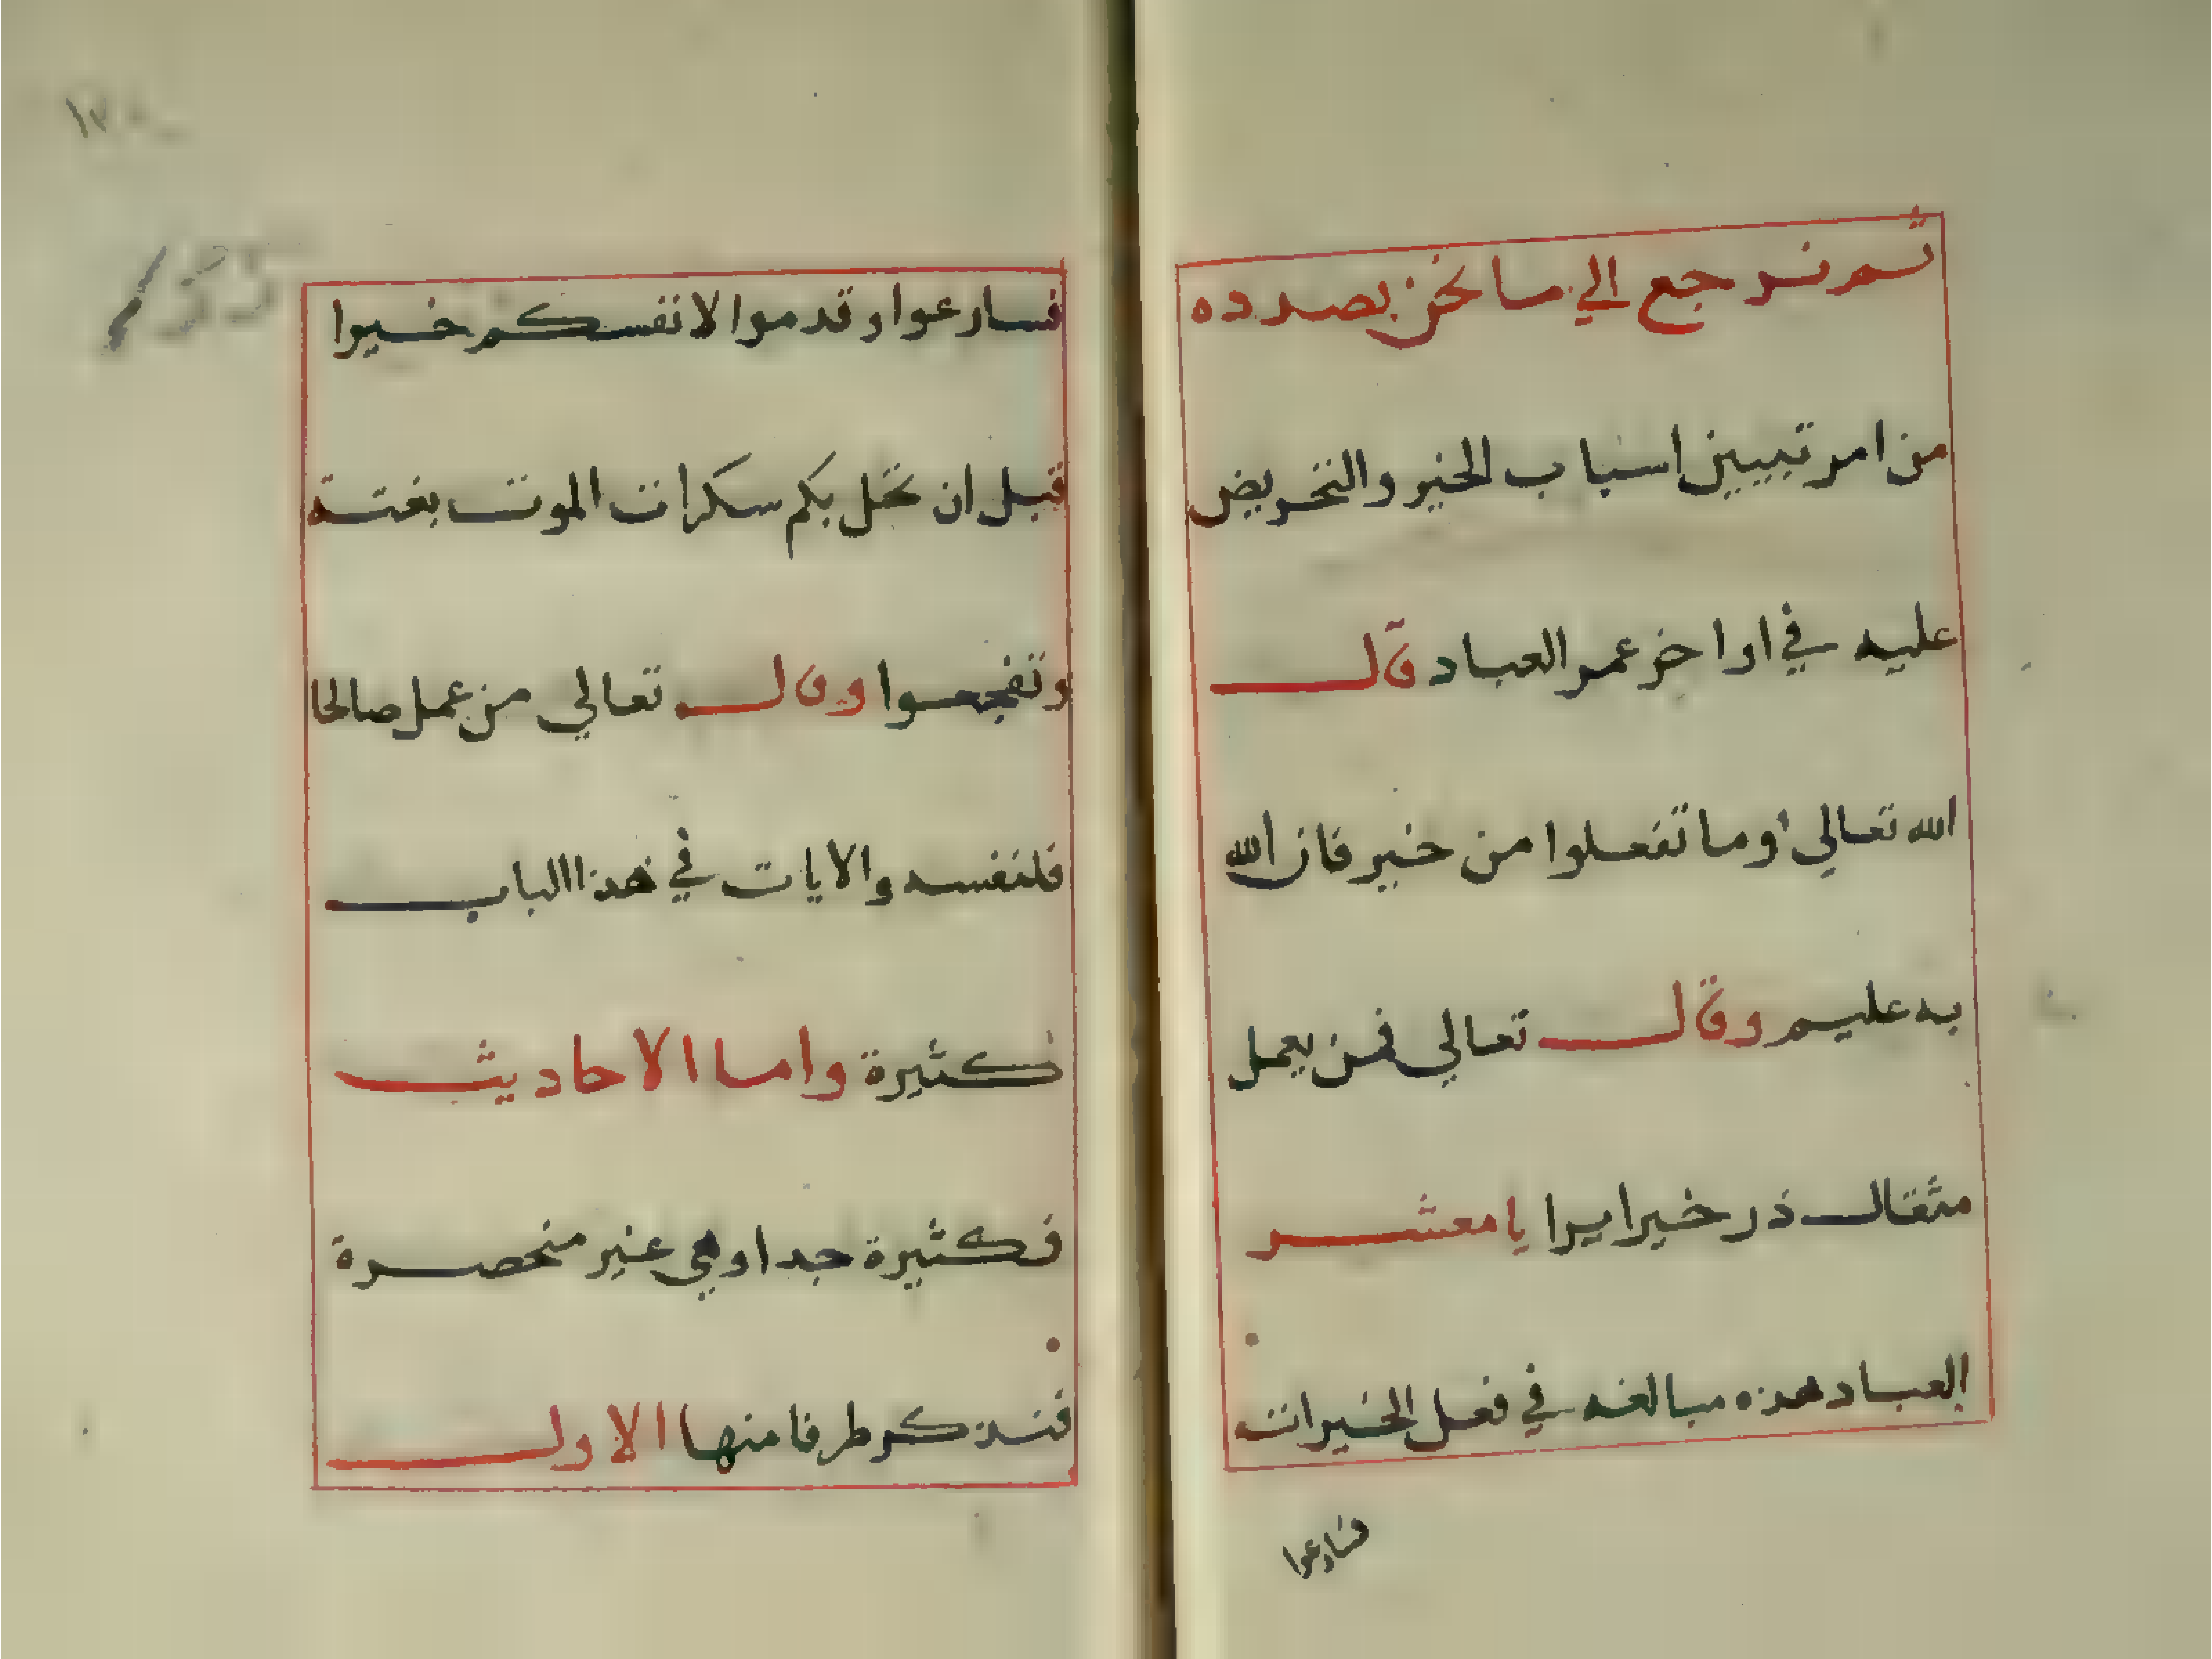 ثم نرجع الي ما نحن بصدده
من امر تبيين اسباب الخير والتحريض
عليه في اواخر عمر العباد قال
الله تعالي وما تفعلوا من خير فان الله
به عليم وقال تعالي فمن يعمل
مثقال ذر خيرا يرا يا معشر
العباد هذه مبالغه في فعل الخيرات
فسارعوا
فسارعوا وقدموا لانفسكم خيرا
قبل ان تحل بكم سكرات الموت بغتة
وقال تعالي من عمل صالحا
فلنفسه والايات في هذا الباب
كثيرة واما الاحاديث
فكثيرة جدا وهي غير منحصرة
فنذكر طرفا منها الاول